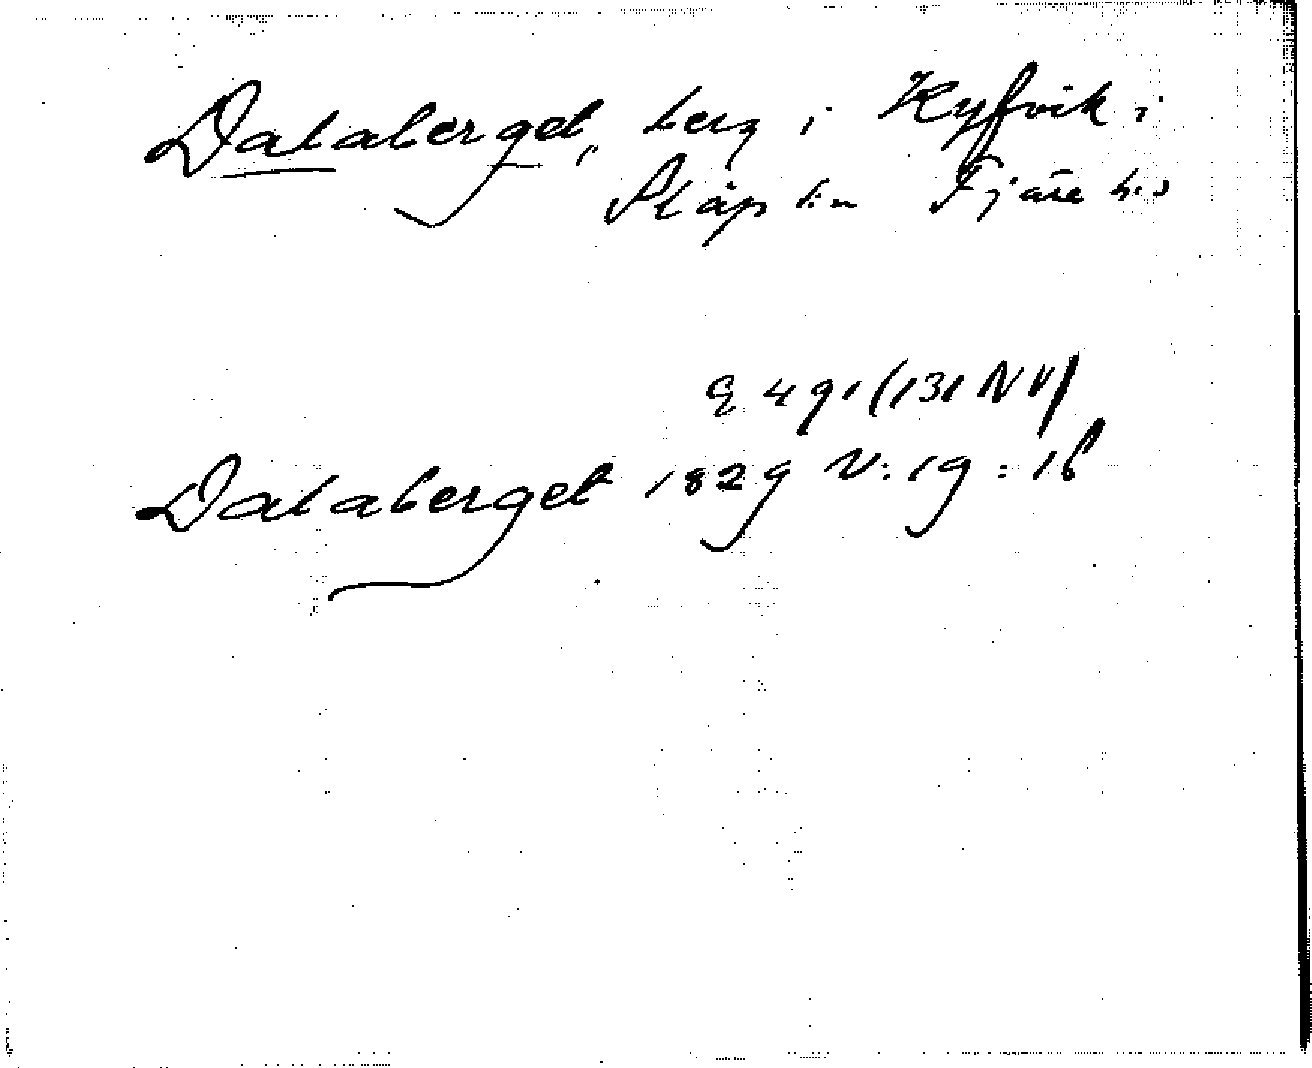 Dalaberget, berg i Kyfvik i
Släps sn Fjäre hd
E 491 (131 NV)
Dalaberget 1829 V:19:16